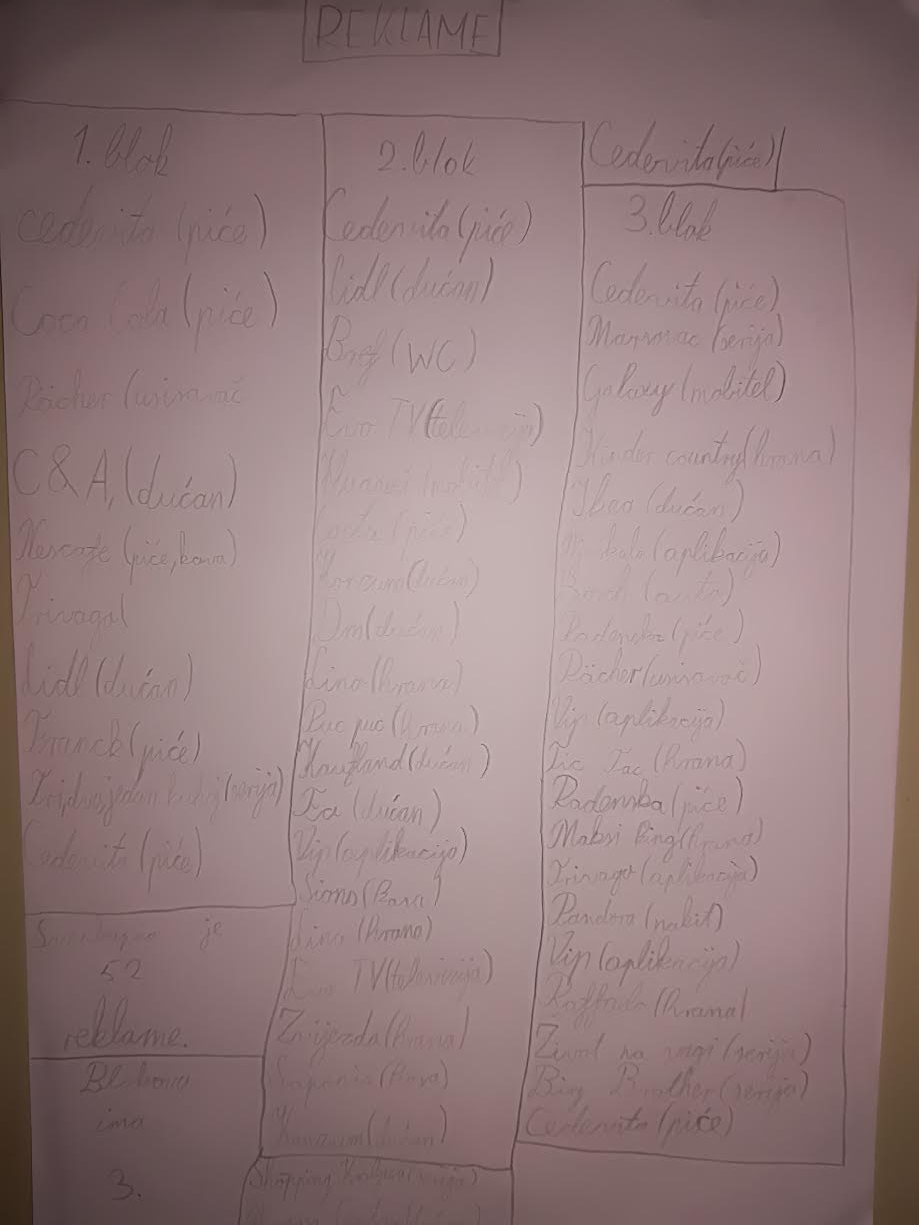 REKLAME
1. blok
Cedevita (piće)
Coca Cola (piće)
(usisavač
C&A, (dućan)
Nescafe (piće, kava)
Trivago(
Lidl (dućan)
Franck (piće)
(serija)
Cedevita (piće)
je
52
reklame.
Blokova
ima
3.
2. blok
Cedevita (piće)
Lidl (dućan)
Bref (WC)
Evo TV (televizija)
(mobitel)
(piće)
Konzum (dućan)
Dm (dućan)
Lino (hrana)
(hrana)
Kaufland (dućan)
(dućan)
Vip (aplikacija)
(kava)
Lino (hrana)
Evo TV (televizija)
Zvijezda (hrana)
(kava)
Konzum (dućan)
Shopping (serija)
Cedevita (piće)
3. blok
Cedevita (piće)
(serija)
Galaxy (mobitel)
Kinder country (hrana)
(dućan)
(aplikacija)
(auto)
Radenska (piće)
(usisavač)
Vip (aplikacija)
Tic Tac (hrana)
Radenska (piće)
Maksi King (hrana)
Trivago (aplikacija)
Pandora (nakit)
Vip (aplikacija)
Raffaelo (hrana)
Život na vagi (serija)
Big Brother (serija)
Cedevita (piće)